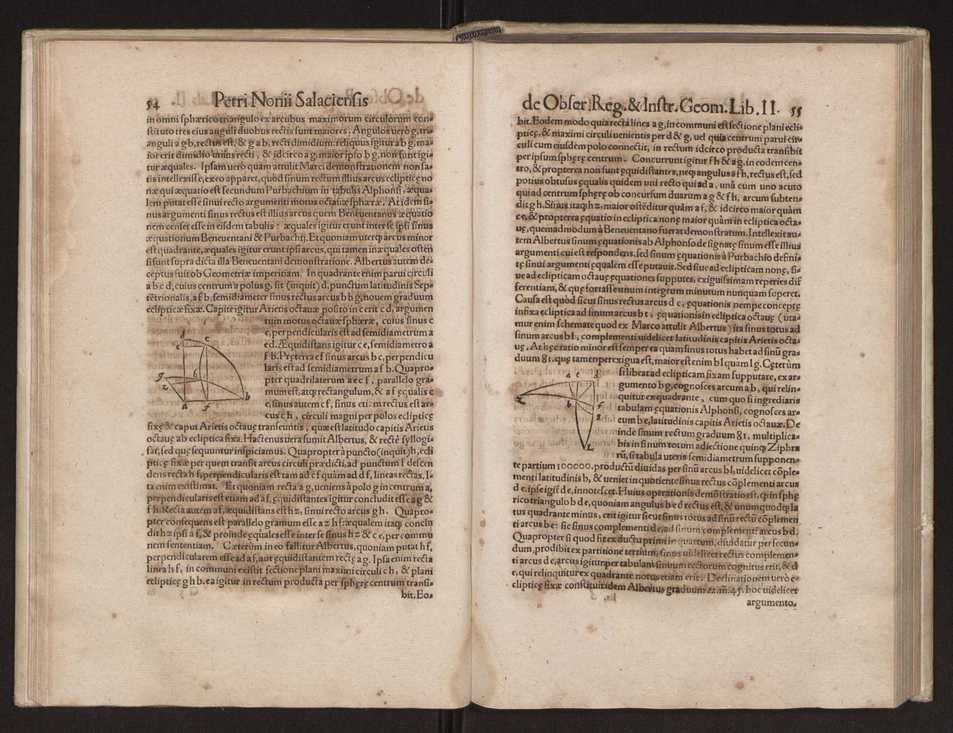 54 Petri Nonii Salaciensis
in omni sphærico triangulo ex arcubus maximorum circulorum con-
stituto tres eius anguli duobus rectis sunt maiores. Angulos uerò g, tri-
anguli a g b, rectus est, & g a b, recti dimidium: reliquus igitur a b g, ma-
ior erit dimidio unius recti, & idcirco a g, maior ipso b g, non sunt igi-
tur æquales. Ipsam uerò quam attulit Marci demonstrationem non sa-
tis intellexisse, ex eo apparet, quòd sinum rectum illius arcus eclipticę no
næ qui æquatio est secundum Purbachium in tabulis Alphonsi, æqua-
lem putat esse sinui recto argumenti motus octauæ sphæræ. At idem si-
nus argumenti sinus rectus est illius arcus quem Beneuentanus æquatio
nem censet esse in eisdem tabulis: æquales igitur erunt inter se ipsi sinus
æquationum Beneuentani & Purbachij. Et quoniam uterq; arcus minor
est quadrante, æquales igitur erunt ipsi arcus, qui tamen inæquales osten
si sunt supra dicta illa Beneuentani demonstratione. Albertus autem de-
ceptus fuit ob Geometriæ imperitiam. In quadrante enim parui circuli
a b c d, cuius centrum a polus g. sit (inquit) d, punctum latitudinis Sep-
tētrionalis, a f b, semidiameter sinus rectus arcus b h g, nouem graduum
eclipticæ fixæ. Capite igitur Arietis octauæ posito in c erit c d, argumen
tum motus octauæ sphæræ, cuius sinus e
c, perpendicularis est ad semidiametrum a
e d. Æquidistans igitur c e, semidiametro a
f b. Pręterea c f sinus arcus b c, perpendicu
laris est ad semidiametrum a f b. Quapro-
pter quadrilaterum a e c f, parallelo gra-
mum est, atq; rectangulum, & a f ęqualis e
c, sinus autem c f, sinus est. in rectus est ar-
cus c h, circuli magni per polos eclipticę
fixę & caput Arietis octauę transeuntis, quæ est latitudo capitis Arietis
octauę ab ecliptica fixa. Hactenus uera sumit Albertus, & rectè syllogi-
sat, sed quę sequuntur inspiciamus. Quapropter à puncto (inquit) h, ecli
pticę fixæ per quem transit arcus circuli prædicti, ad punctum f descen
dens recta h f, perpendicularis est tam ad c f quàm ad d f, lineas rectas. I-
ta enim existimat. Et quoniam recta a g, ueniens à polo g in centrum a,
perpendicularis est etiam ad a f, ęquidistantes igitur concludit esse a g &
f h. Recta autem a f, æquidistans est h z, sinui recto arcus g h. Quapro-
pter consequens est parallelo gramum esse a z h f: æqualem itaq; conclu
dit h z ipsi a f, & proinde ęquales esse inter se sinus h z & c e, per commu
nem sententiam. Cæterùm in eo fallitur Albertus, quoniam putat h f,
perpendicularem esse ad a f, aut ęquidistantem rectę a g. Ipsa enim recta
linea h f, in communi existit sectione plani maximi circuli c h, & plani
eclipticę g h b. ea igitur in rectum producta per sphęrę centrum transi-
bit. Eo-
de Obser. Reg. & Instr. Geom. Lib. II. 55
bit. Eodem modo quia recta linea a g, in communi est sectione plani ecli-
pticę, & maximi circuli uenientis per d & g, uel quia centrum parui cir-
culi cum eiusdem polo connectit, in rectum idcirco producta transibit
per ipsum sphęrę centrum. Concurrunt igitur f h & a g, in eodem cen-
tro, & propterea non sunt ęquidistantes, neq; angulus a f h, rectus est, sed
potius obtusus ęqualis quidem uni recto qui ad a, unà cum uno acuto
qui ad centrum sphęrę ob concursum duarum a g & f h, arcum subten-
dit g h. Sinus itaq; h z, maior ostēditur quàm a f, & idcirco maior quàm
c e, & propterea ęquatio in ecliptica nonę maior quàm in ecliptica octa-
uę, quemadmodum à Beneuentano fuerat demonstratum. Intellexit au-
tem Albertus sinum ęquationis ab Alphonso designatę sinum esse illius
argumenti cui est respondens, sed sinum ęquationis à Purbachio defini-
tę sinui argumenti ęqualem esse putauit. Sed siue ad eclipticam nonę, si-
ue ad eclipticam octauę ęquationes supputes, exiguissimam reperies dif
ferentiam, & quę fortasse unum integrum minutum nunquam superet.
Causa est quòd sicut sinus rectus arcus d c, ęquationis nempe conceptę
in fixa ecliptica ad sinum arcus b e, ęquationis in ecliptica octauę (uta-
mur enim schemate quod ex Marco attulit Albertus) ita sinus totus ad
sinum arcus b l, complementi uidelicet latitudinis capitis Arietis octa-
uę. At hęc ratio minor est semper ea quam sinus totus habet ad sinū gra-
duum 81. quę tamen perexigua est, maior est enim b l quam l g. Cęterùm
si libeat ad eclipticam fixam supputare, ex ar-
gumento b g, cognosces arcum a b, qui relin-
quitur ex quadrante, cum quo si ingrediaris
tabulam ęquationis Alphonsi, cognosces ar-
cum b e, latitudinis capitis Arietis octauæ. De
inde sinum rectum graduum 81. multiplica-
bis in sinum totum adiectione quinq; Ziphra
rū, si tabula uteris semidiametrum supponen-
te partium 100000. productū diuidas per sinū arcus bl, uidelicet cōple-
menti latitudinis b, & ueniet in quotiente sinus rectus cōplementi arcus
d e, ipseigif d e, innotescet. Huius operationis demōstratio est, q̄ in sphę
rico triangulo b d e, quoniam angulus b e d rectus est, & unumquodq; la
tus quadrante minus, erit igitur sicut sinus totus ad sinū rectū cōplemen
ti arcus b e: sic sinus complementi d e, ad sinum complementi arcus b d.
Quapropter si quod fit ex ductu primi in quartum, diuidatur per secun-
dum, prodibit ex partitione tertium, sinus uidelicet rectus complemen-
ti arcus d e, arcus igitur per tabulam sinuum rectorum cognitus erit, & d
e, qui relinquitur ex quadrante notus etiam erit. Declinationem uerò e-
clipticę fixæ constituit idem Albertus graduum 22 mi. 45. hoc uidelicet
argumento.